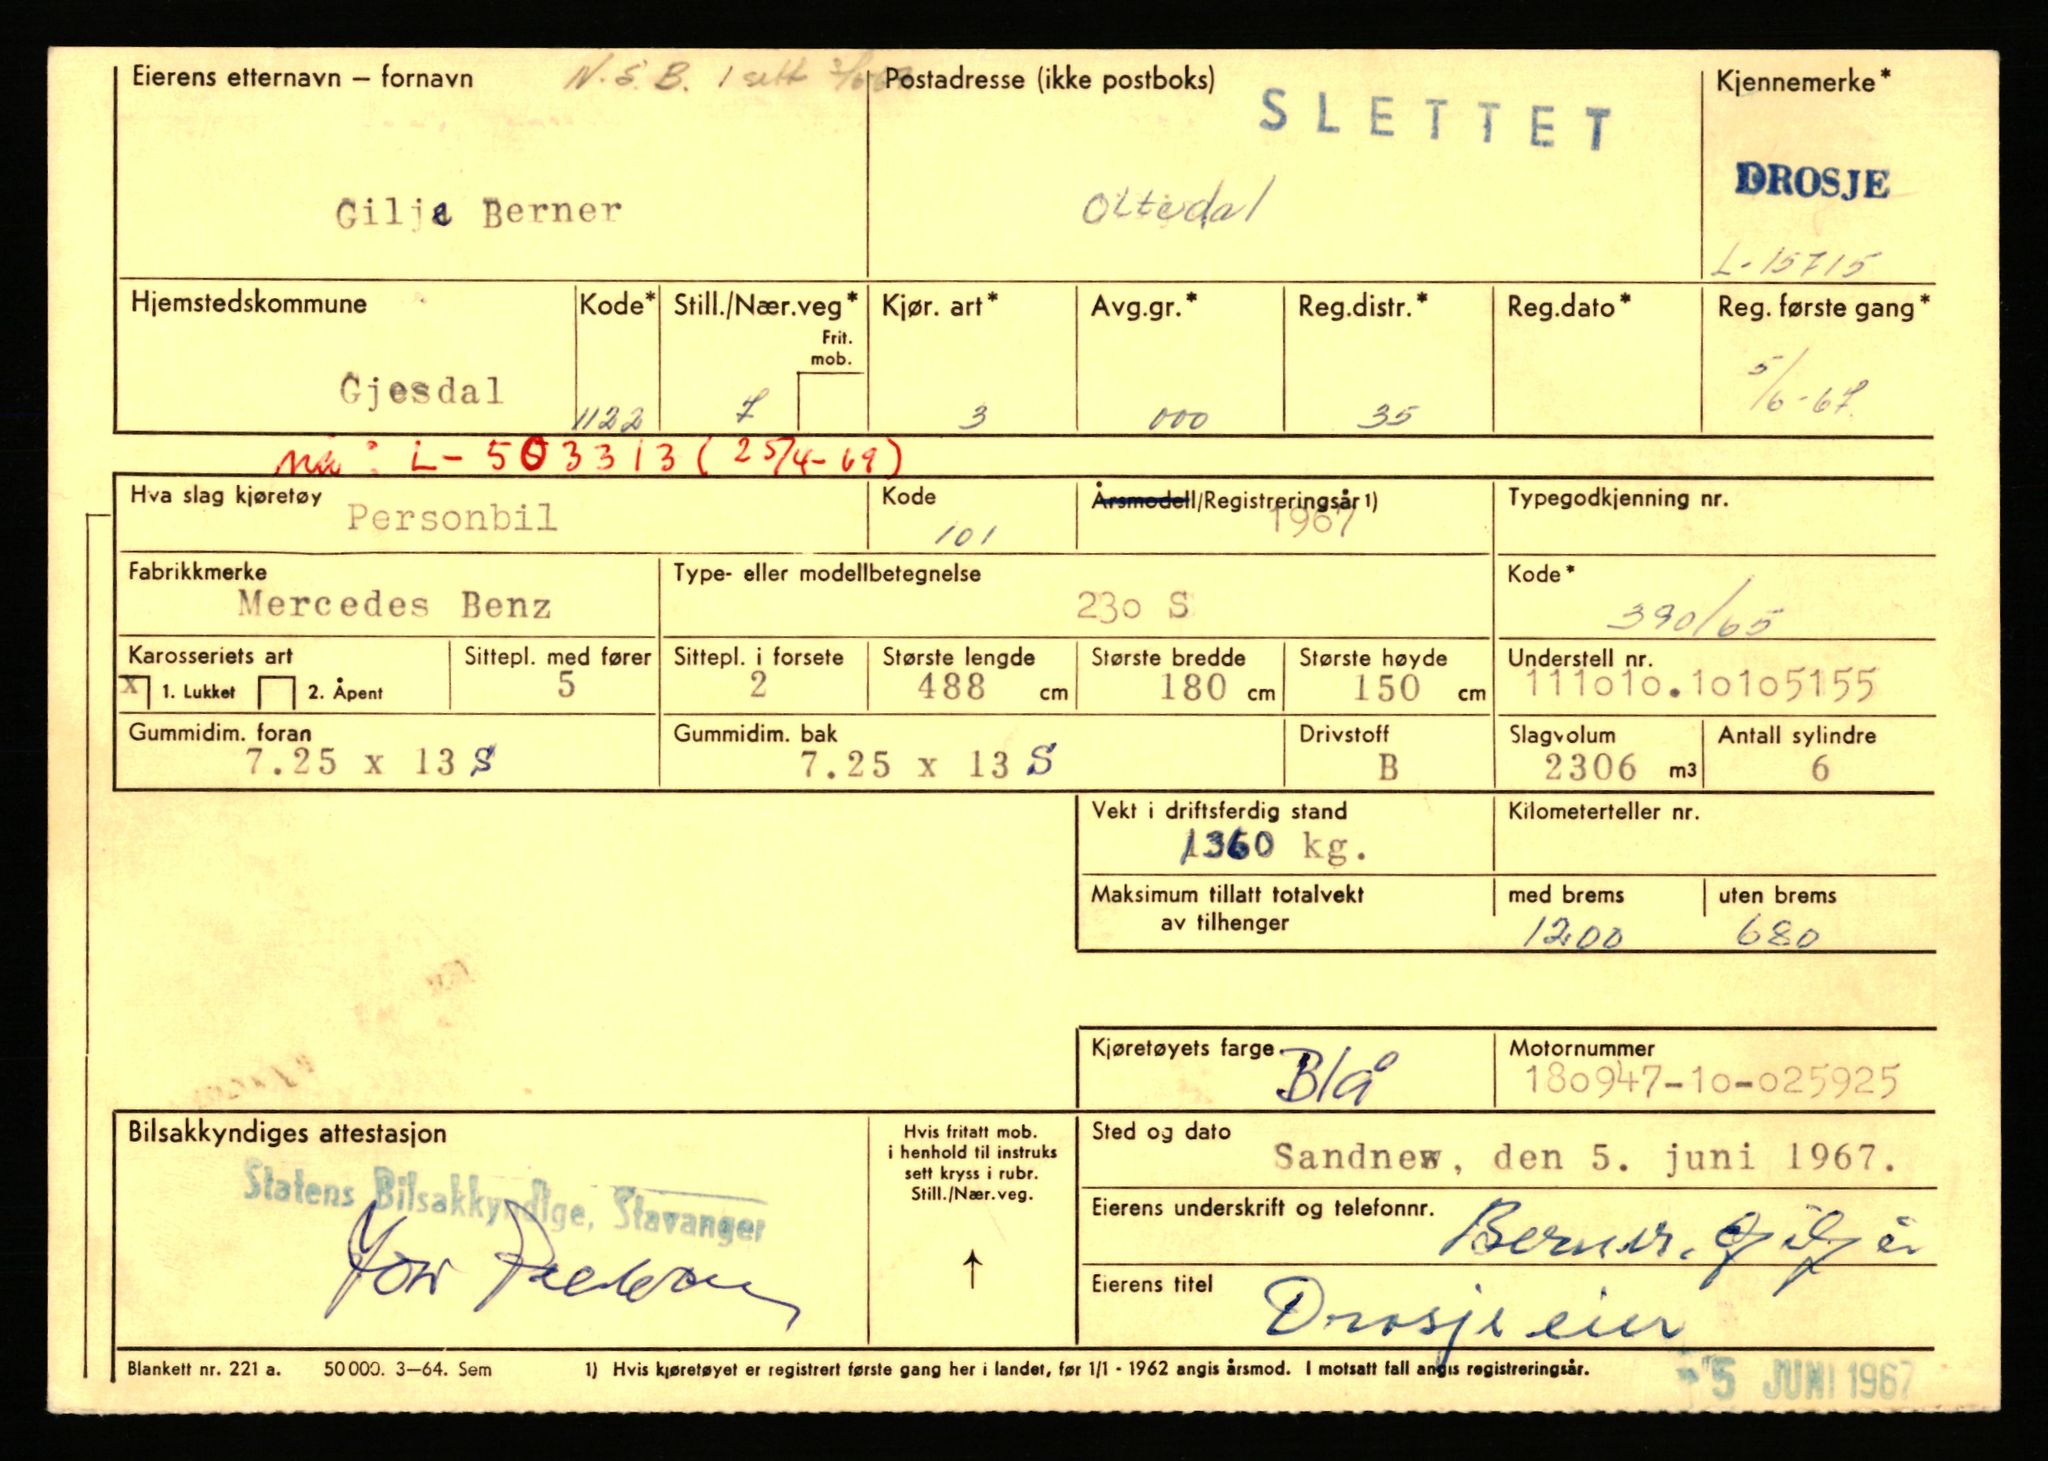 Eierens etternavn – fornavn N.S.B. 1 sett Postadresse (ikke postboks) Kjennemerke*
SLETTET
DROSJE
Gilje Berner Oltedal
L-15715
Hjemstedskommune Kode* Still./Nær.veg* Kjør. art* Avg.gr.* Reg.distr.* Reg.dato* Reg. første gang*
Frit.
mob.
Gjesdal 1122 7 3 000 35 5/6-67.
nå: L-503313 (25/4-69)
Hva slag kjøretøy Kode Årsmodell/Registreringsår 1) Typegodkjenning nr.
Personbil 101 1967
Fabrikkmerke Type- eller modellbetegnelse Kode*
Mercedes Benz 230 S 390/65
Karosseriets art Sittepl. med fører Sittepl. i forsete Største lengde Største bredde Største høyde Understell nr.
x 1. Lukket 2. Åpent 5 2 488 cm 180 cm 150 cm 111010.10105155
Gummidim. foran Gummidim. bak Drivstoff Slagvolum Antall sylindre
7.25 x 13 S 7.25 x 13 S B 2306 m3 6
Vekt i driftsferdig stand Kilometerteller nr.
1360 kg.
Maksimum tillatt totalvekt med brems uten brems
av tilhenger 1200 680
Kjøretøyets farge Motornummer
Blå 180947-10-025925
Bilsakkyndiges attestasjon Hvis fritatt mob. Sted og dato
i henhold til instruks
sett kryss i rubr.
Still./Nær.veg.
Sandnes, den 5. juni 1967.
Statens Bilsakkyndige, Stavanger
Eierens underskrift og telefonnr.
Berner Gilje
↑
Eierens titel
Drosjeeier
Blankett nr. 221 a. 50 000. 3–64. Sem 1) Hvis kjøretøyet er registrert første gang her i landet, før 1/1 - 1962 angis årsmod. I motsatt fall angis registreringsår.
5 JUNI 1967